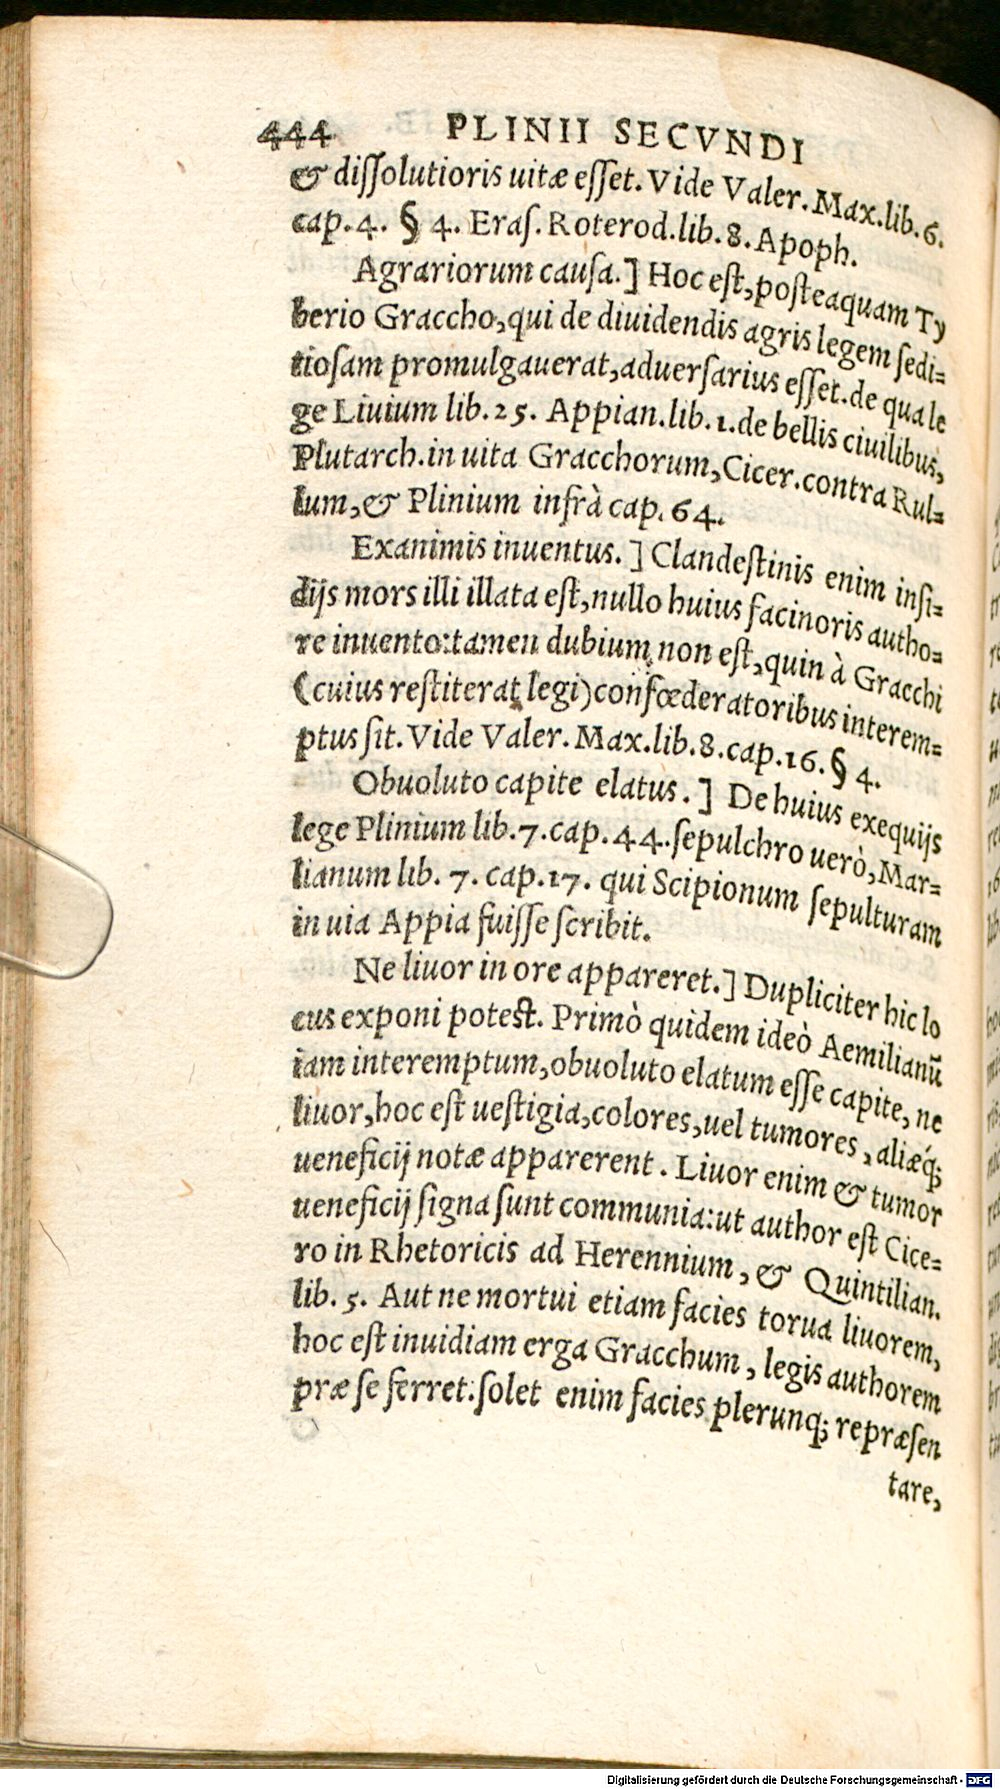 444 PLINII SECVNDI
& diſſolutioris uitæ eſſet. Vide Valer. Max. lib. 6.
cap. 4. § 4. Eraſ. Roterod. lib. 8. Apoph.
Agrariorum cauſa.] Hoc eſt, poſteaquam Ty
berio Graccho, qui de diuidendis agris legem ſedi=
tioſam promulgauerat, aduerſarius eſſet. de qua le
ge Liuium lib. 25. Appian. lib. 1. de bellis ciuilibus,
Plutarch. in uita Gracchorum, Cicer. contra Rul=
lum, & Plinium infrà cap. 64.
Exanimis inuentus.] Clandeſtinis enim inſi=
dijs mors illi illata eſt, nullo huius facinoris autho=
re inuento: tamen dubium non eſt, quin à Gracchi
(cuius reſtiterat legi) confœderatoribus interem=
ptus ſit. Vide Valer. Max. lib. 8. cap. 16. § 4.
Obuoluto capite elatus.] De huius exequijs
lege Plinium lib. 7. cap. 44. ſepulchro uerò, Mar=
lianum lib. 7. cap. 17. qui Scipionum ſepulturam
in uia Appia fuiſſe ſcribit.
Ne liuor in ore appareret.] Dupliciter hic lo
cus exponi poteſt. Primò quidem ideò Aemilianū
iam interemptum, obuoluto elatum eſſe capite, ne
liuor, hoc eſt ueſtigia, colores, uel tumores, aliæq́;
ueneficij notæ apparerent. Liuor enim & tumor
ueneficij ſigna ſunt communia: ut author eſt Cice=
ro in Rhetoricis ad Herennium, & Quintilian.
lib. 5. Aut ne mortui etiam facies torua liuorem,
hoc eſt inuidiam erga Gracchum, legis authorem
præ ſe ferret: ſolet enim facies plerunq; repræſen
tare,
Digitalisierung gefördert durch die Deutsche Forschungsgemeinschaft - DFG